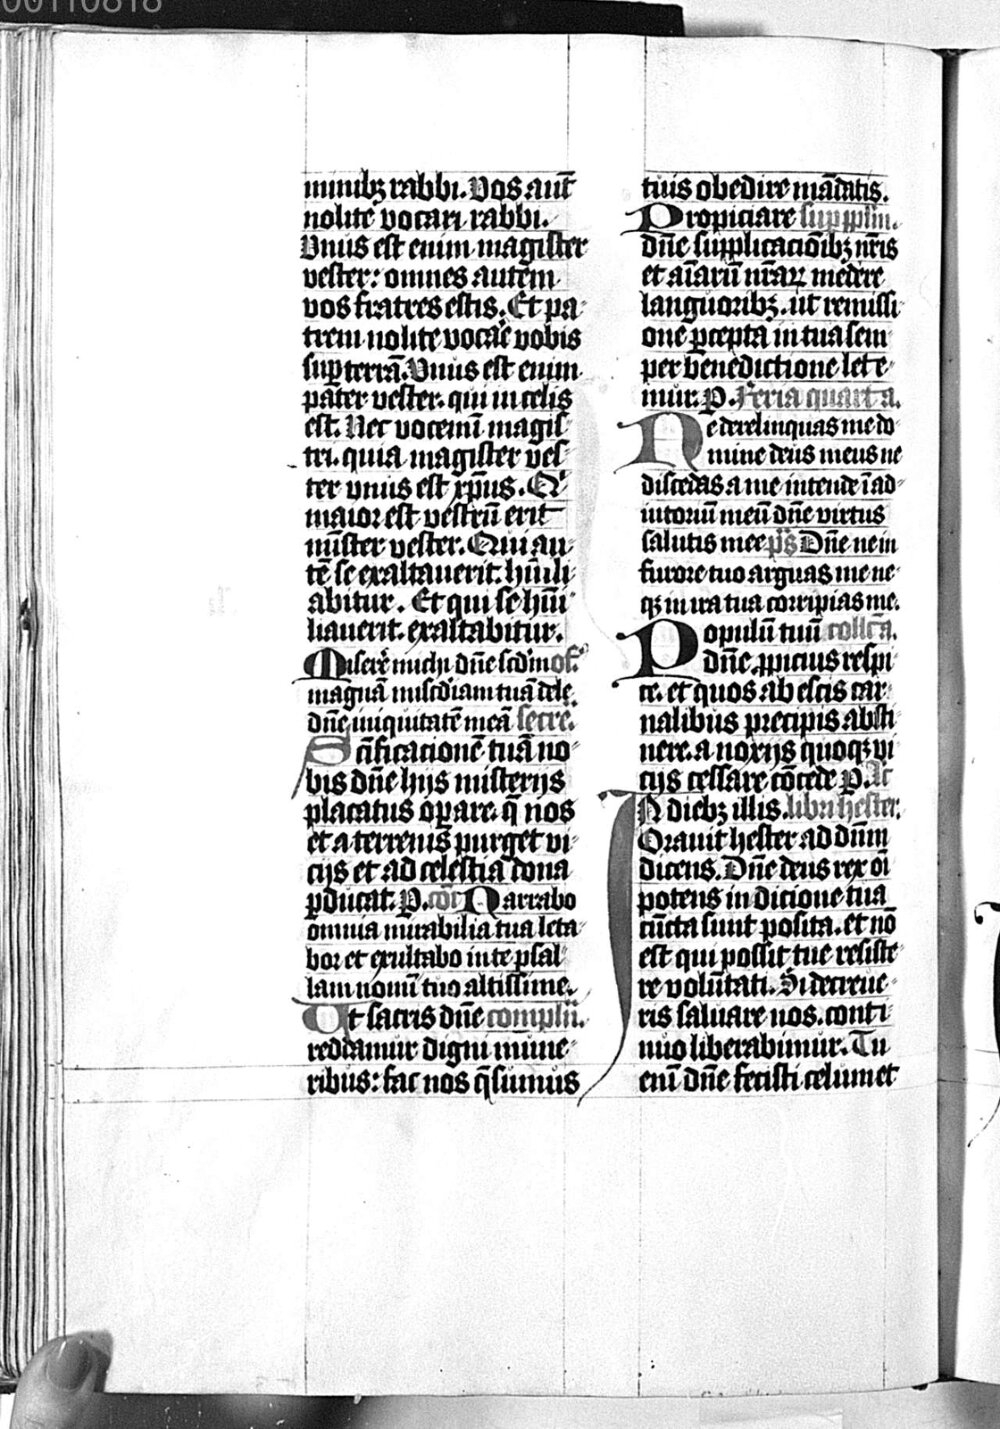 00110818
minibꝫ rabbi. Vos aut̄
nolite vocari rabbi.
Vnus est enim magister
vester: omnes autem
vos fratres estis. Et pa
trem nolite vocar̄e vobis
suꝑ terrā. Vnus est enim
pater vester. qui in celis
est. Nec vocemī magis
tri. quia magister ves
ter vnus est xp̄us. Qͥ
maior est vestrū erit
mīster vester. Qui au
tē se exaltauerit. hūili
abitur. Et qui se hūi
liauerit. exaltabitur.
Miserēˀ michi dn̄e scd̄m of̄.
magnā misc̄diam tuā dele
dn̄e iniquitatē meā secre.
Sc̄ificacionē tuā no
bis dn̄e hijs misterijs
placatus oꝑare. q̄ nos
et a terrenis purget vi
cijs et ad celestia dona
ꝑducat. P. cōr Narrabo
omnia mirabilia tua leta
bor et exultabo in te psal
lam nomī tuo altissime.
Ut sacris dn̄e complīn̄.
reddamur digni mune
ribus: fac nos q̄sumus
tuis obedire mādatis.
Propiciare suꝑ pplīm.
dn̄e supplicacōibꝫ nr̄is
et aīarū nr̄aꝝ medere
languoribꝫ. ut remissi
one ꝑcepta in tua sem
per benedictione lete
mur. P. Feria quarta.
Ne derelinquas me do
mine deus meus ne
discedas a me intende ī ad
iutoriū meū dn̄e virtus
salutis mee p̄s Dn̄e ne in
furore tuo arguas me ne
qꝫ in ira tua corripias me.
Populū tuū collc̄a.
dn̄e ꝓpicius respi
ce. et quos ab escis car
nalibus precipis absti
nere. a noxijs quoqꝫ vi
cijs cessare cōcede P. lc̄
In diebꝫ illis. libri hester.
Orauit hester ad dn̄m
dicens. Dn̄e deus rex oī
potens in dicione tua
cūcta sunt posita. et nō
est qui possit tue resiste
re volūtati. Si decreue
ris saluare nos. conti
nuo liberabimur. Tu
enī dn̄e fecisti celum et